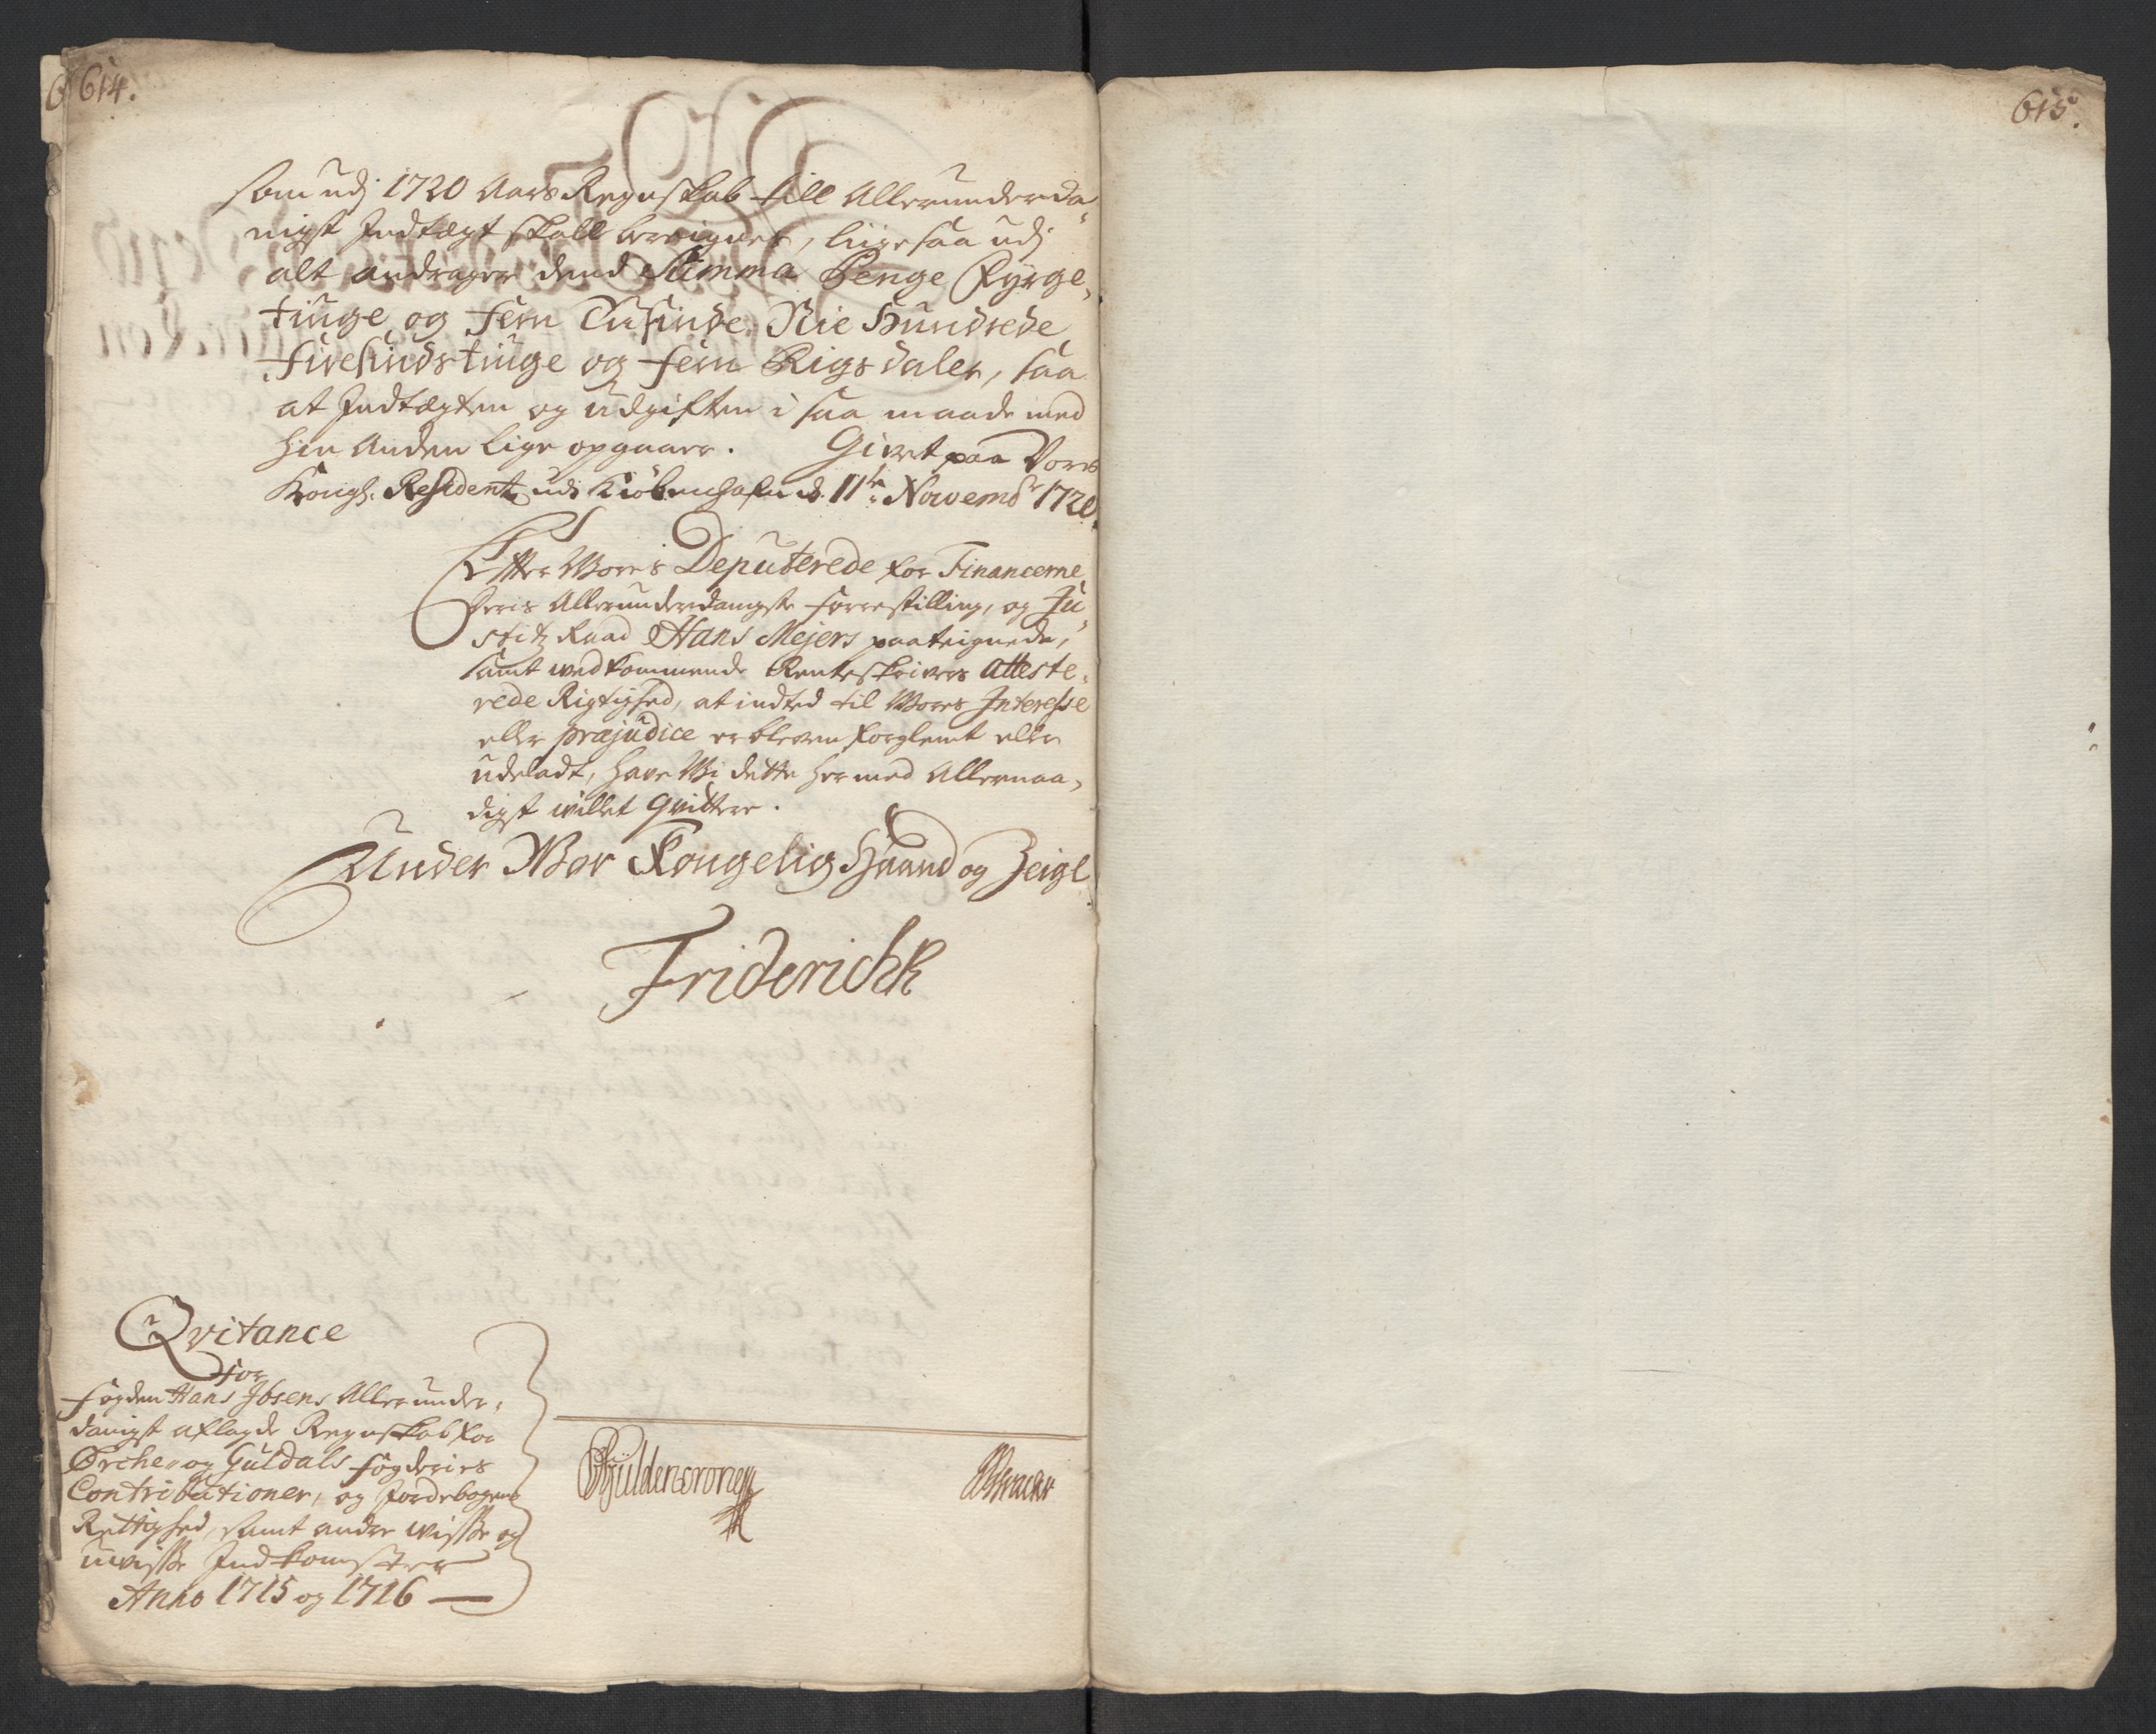 614.
som udj 1720 Aars Regnskab till Allerunderda-
nigst Indtægt skall beregnes, liigesaa udj
alt andrager dend Summa Penge Fyrge-
tiuge og fem Tusinde, Nie Hundrede
Firesindstiuge og fem Rigsdaler, saa
at Indtægten og udgiften i saa maade med
hin Anden lige opgaar. Givet paa Vores
Kongl: Residentz udi Kiöbenhafn d. 11te Novembr 1720.
Efter Wores Deputerede for Financerne
Deris Allerunderdanigste forrestilling, og Ju-
stitz Raad Hans Mejers paateignede,
samt wedkommende Renteskrivers atteste-
rede Rigtighed, at indted til Wores Interesse
eller præjudice er bleven forglemt eller
udeladt, have Wi dette hermed Allernaa-
digst willet Qvittere.
Under Wor Kongelig Haand og Zeigl
Friderich R
Qvitance
for
fogden Hans Ibsens Allerunder-
danigst aflagde Regnskab for
Orche- og Guldals fogderies
Contributioner, og Jordebogens
Rettighed, samt andre wisse og
uwisse Indkomster
Anno 1715 og 1716
Güldencrone
615.